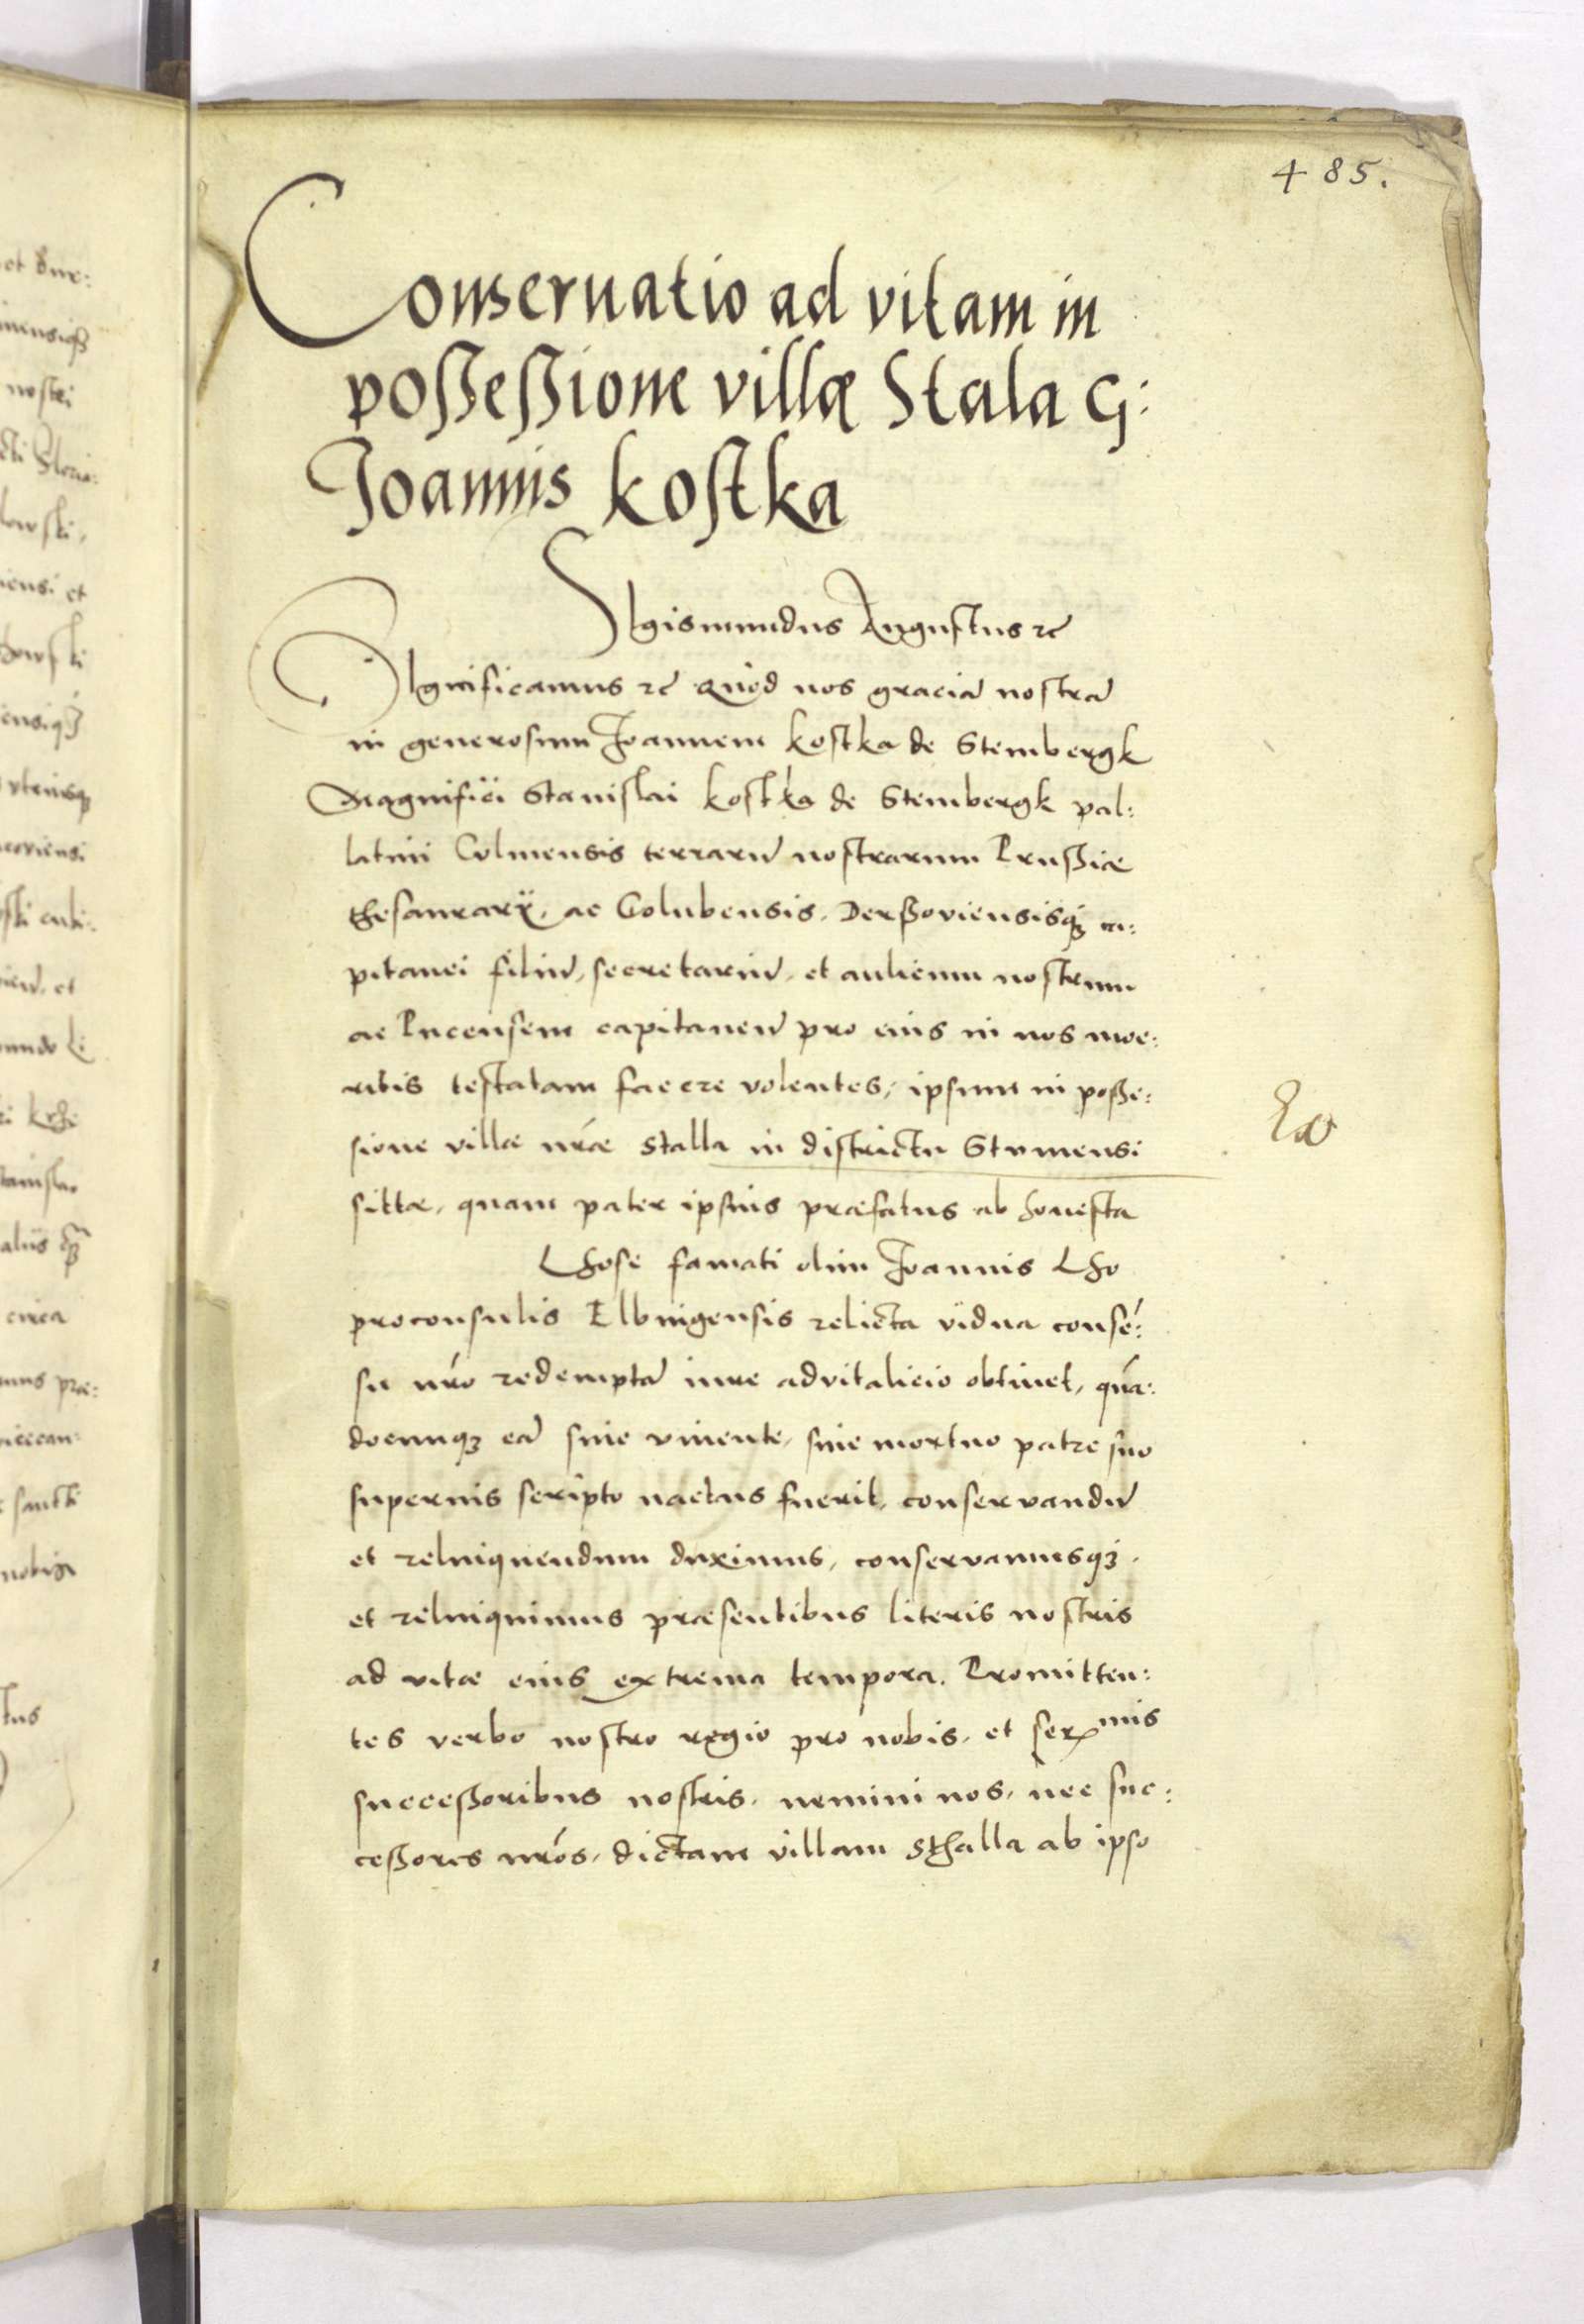 485.
Conseruatio ad vitam in
poßeßione villæ Stala G:
Joannis Kostka
Sigismundus Augustus etc
Significamus etc Quod nos graciā nostrā
in generosum Joannem Kostka de Stembergk
Magnifici Stanislai Kostka de Stembergk pal:
latini Culmensis terrarū nostrarum Prußiæ
thesaurarÿ, ac Golubensis, Derßoviensisqȝ ca:
pitanei filiū, secretariū, et aulicum nostrum
ac Pucensem capitaneū pro eius in nos moe:
ritis testatam facere volentes, ipsum in poßes:
sione villæ nr̃æ Stalla in districtu Stumensi
sittæ, quam pater ipsius præfatus ab honesta
Lhose famati olim Joannis Lho
proconsulis Elbingensis relicta vidua consē:
su nr̃o redemptā iure advitalicio obtinet, quā:
docunqȝ eā siue viuente, siue mortuo patre suo
superius scripto nactus fuerit, conservandū
et relinquendum duximus, conservamusqȝ.
et relinquimus præsentibus literis nostris
ad vitæ eius extrema tempora. Promitten:
tes verbo nostro regio pro nobis, et Ser^mis
succeßoribus nostris, nemini nos, nec suc:
ceßores nr̃os, dictam villam Sthalla ab ipso